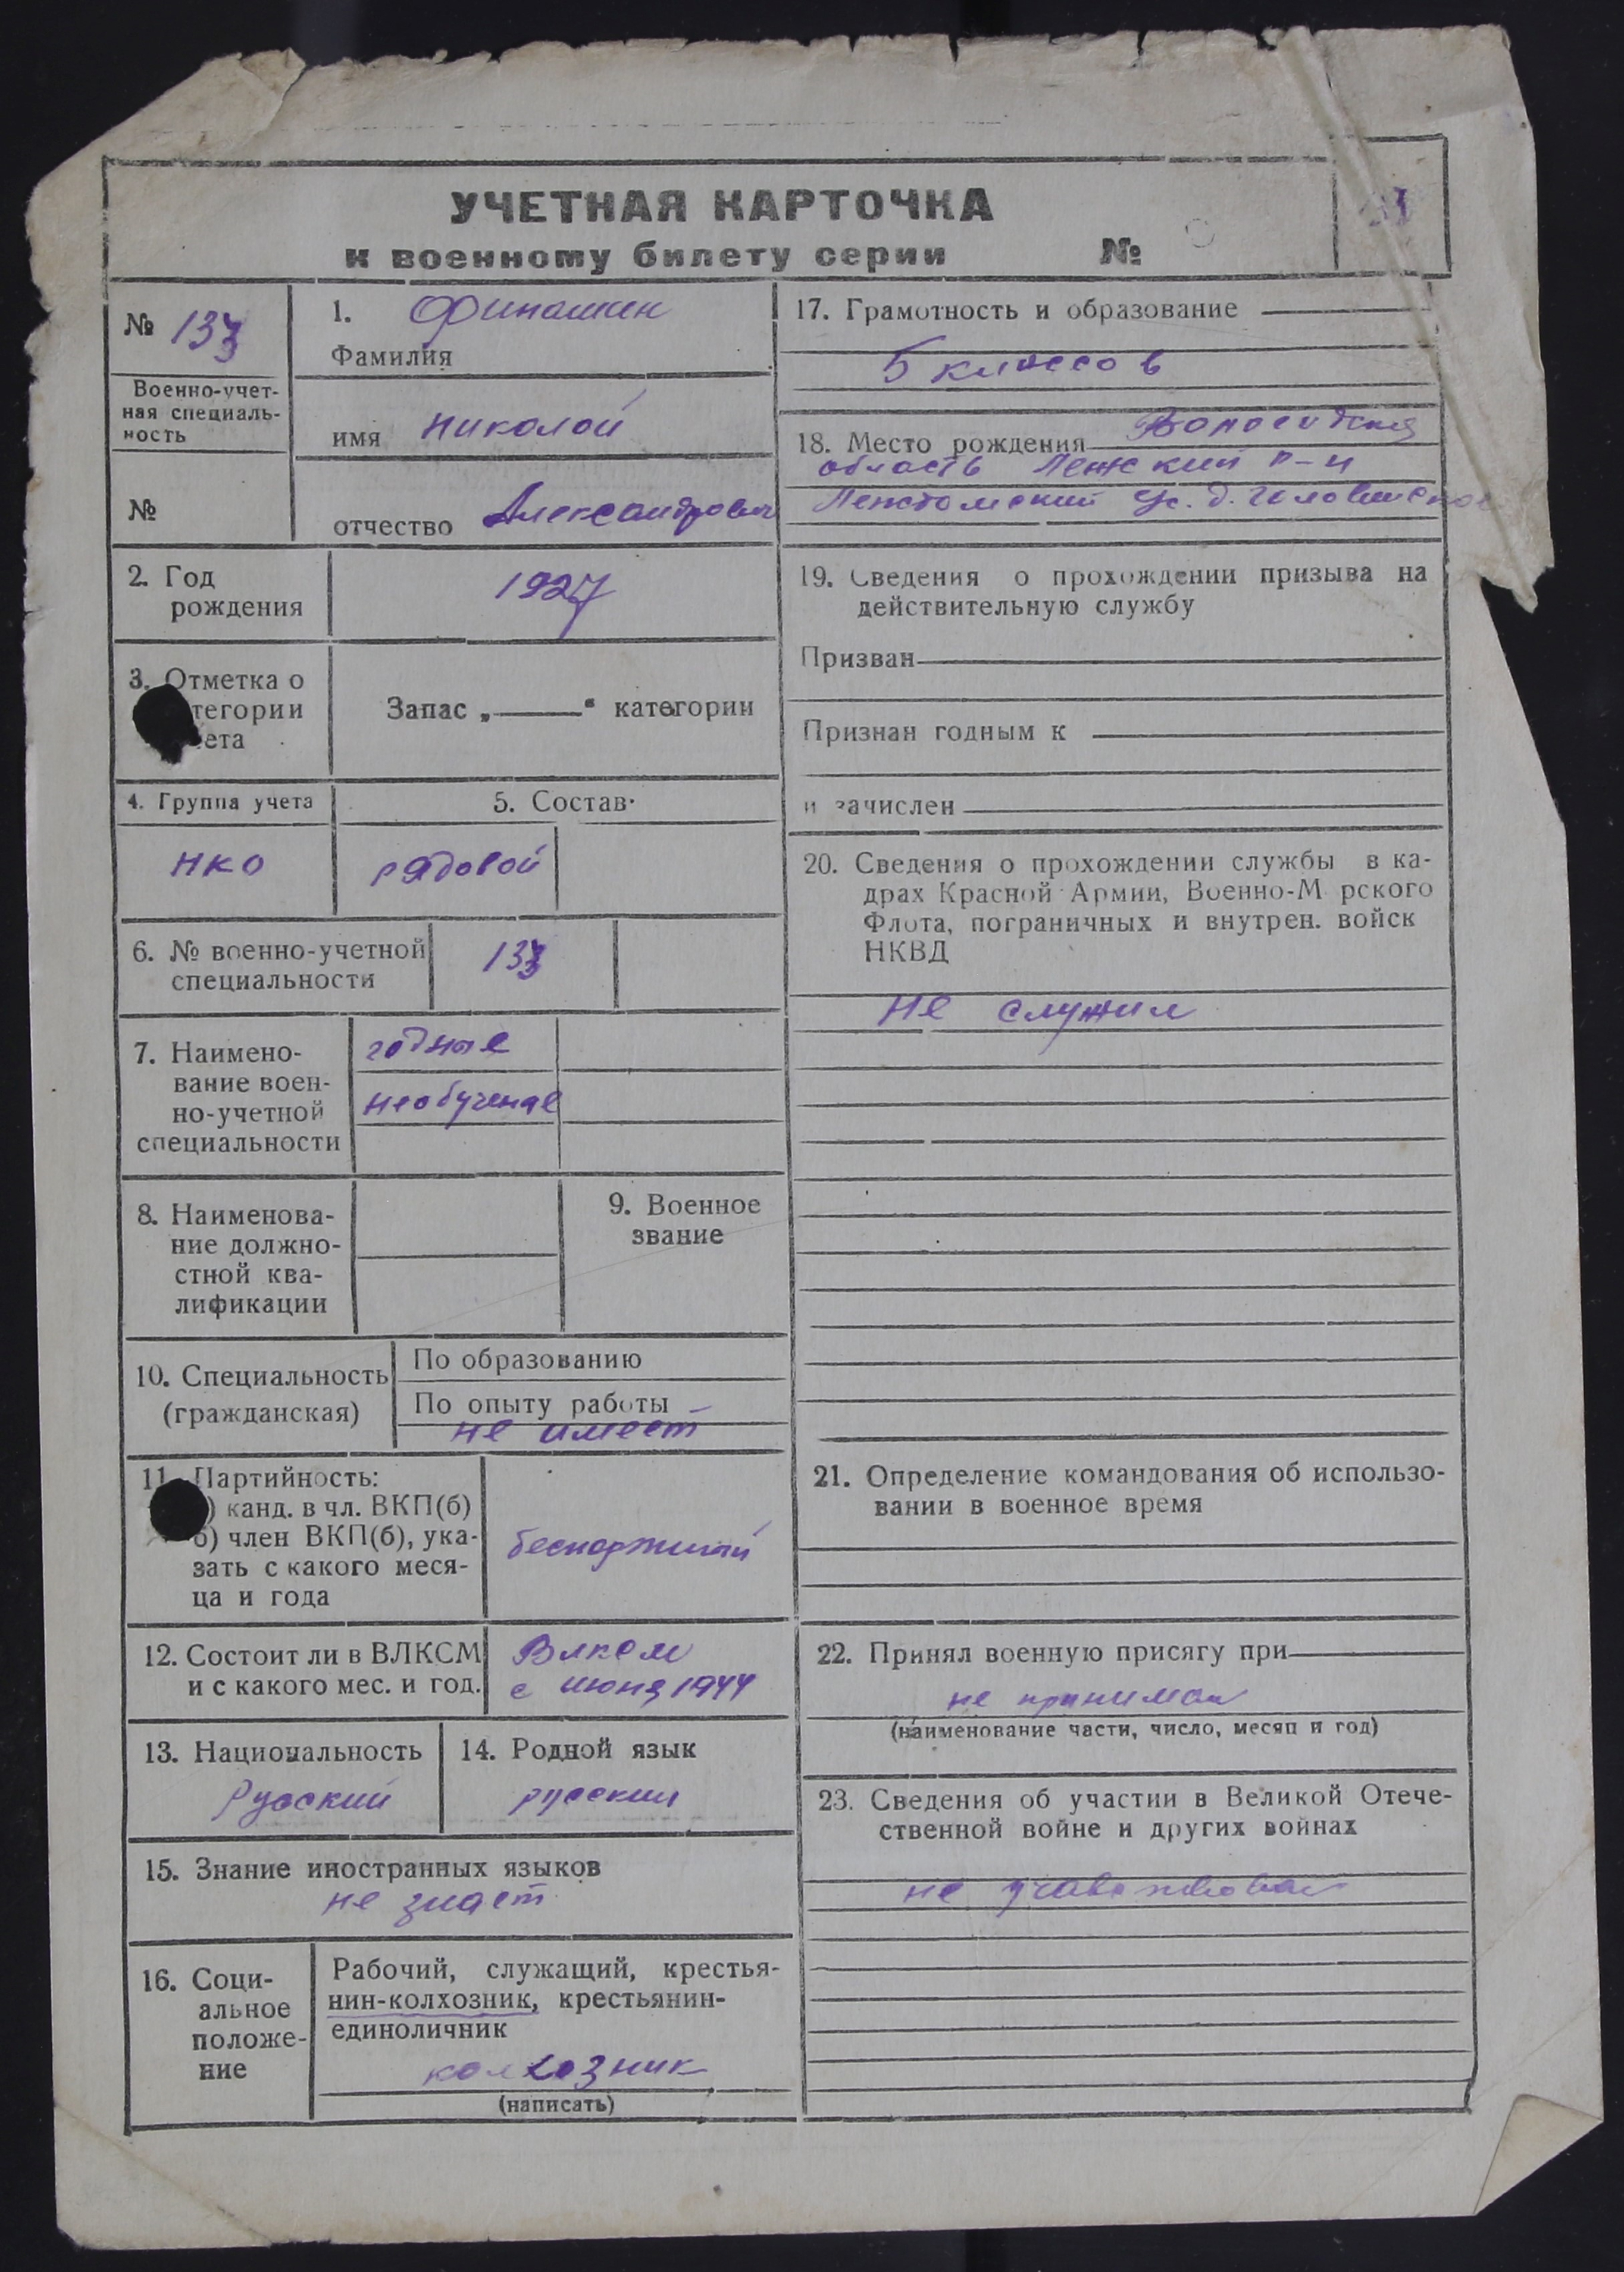 УЧЕТНАЯ КАРТОЧКА
к военному билету серии №
№ 133
Военно-учет-
ная специаль-
ность
№
1. Финашин
Фамилия
имя Николай
отчество Александрович
2. Год
рождения
1927
3. Отметка о
тегории
ета
Запас „ “ категории
4. Группа учета
НКО
5. Состав
рядовой
6. № военно-учетной
специальности
133
7. Наимено-
вание воен-
но-учетной
специальности
годные
необученые
8. Наименова-
ние должно-
стной ква-
лификации
9. Военное
звание
10. Специальность
(гражданская)
По образованию
По опыту работы
не имеет
11. Партийность:
) канд. в чл. ВКП(б)
б) член ВКП(б), ука-
зать с какого меся-
ца и года
беспартийный
12. Состоит ли в ВЛКСМ
и с какого мес. и год.
Влксм
с июня 1944
13. Национальность
Русский
14. Родной язык
русский
15. Знание иностранных языков
не знает
16. Соци-
альное
положе-
ние
Рабочий, служащий, крестья-
нин-колхозник, крестьянин-
единоличник
колхозник
(написать)
17. Грамотность и образование
5 классов
18. Место рождения Вологодская
область Лежский р-н
с. д.
19. Сведения о прохождении призыва на
действительную службу
Призван
Признан годным к
и зачислен
20. Сведения о прохождении службы в ка-
драх Красной Армии, Военно-М рского
Флота, пограничных и внутрен. войск
НКВД
не служил
21. Определение командования об использо-
вании в военное время
22. Принял военную присягу при
не принимал
(наименование части, число, месяц и год)
23. Сведения об участии в Великой Отече-
ственной войне и других войнах
не участвовал